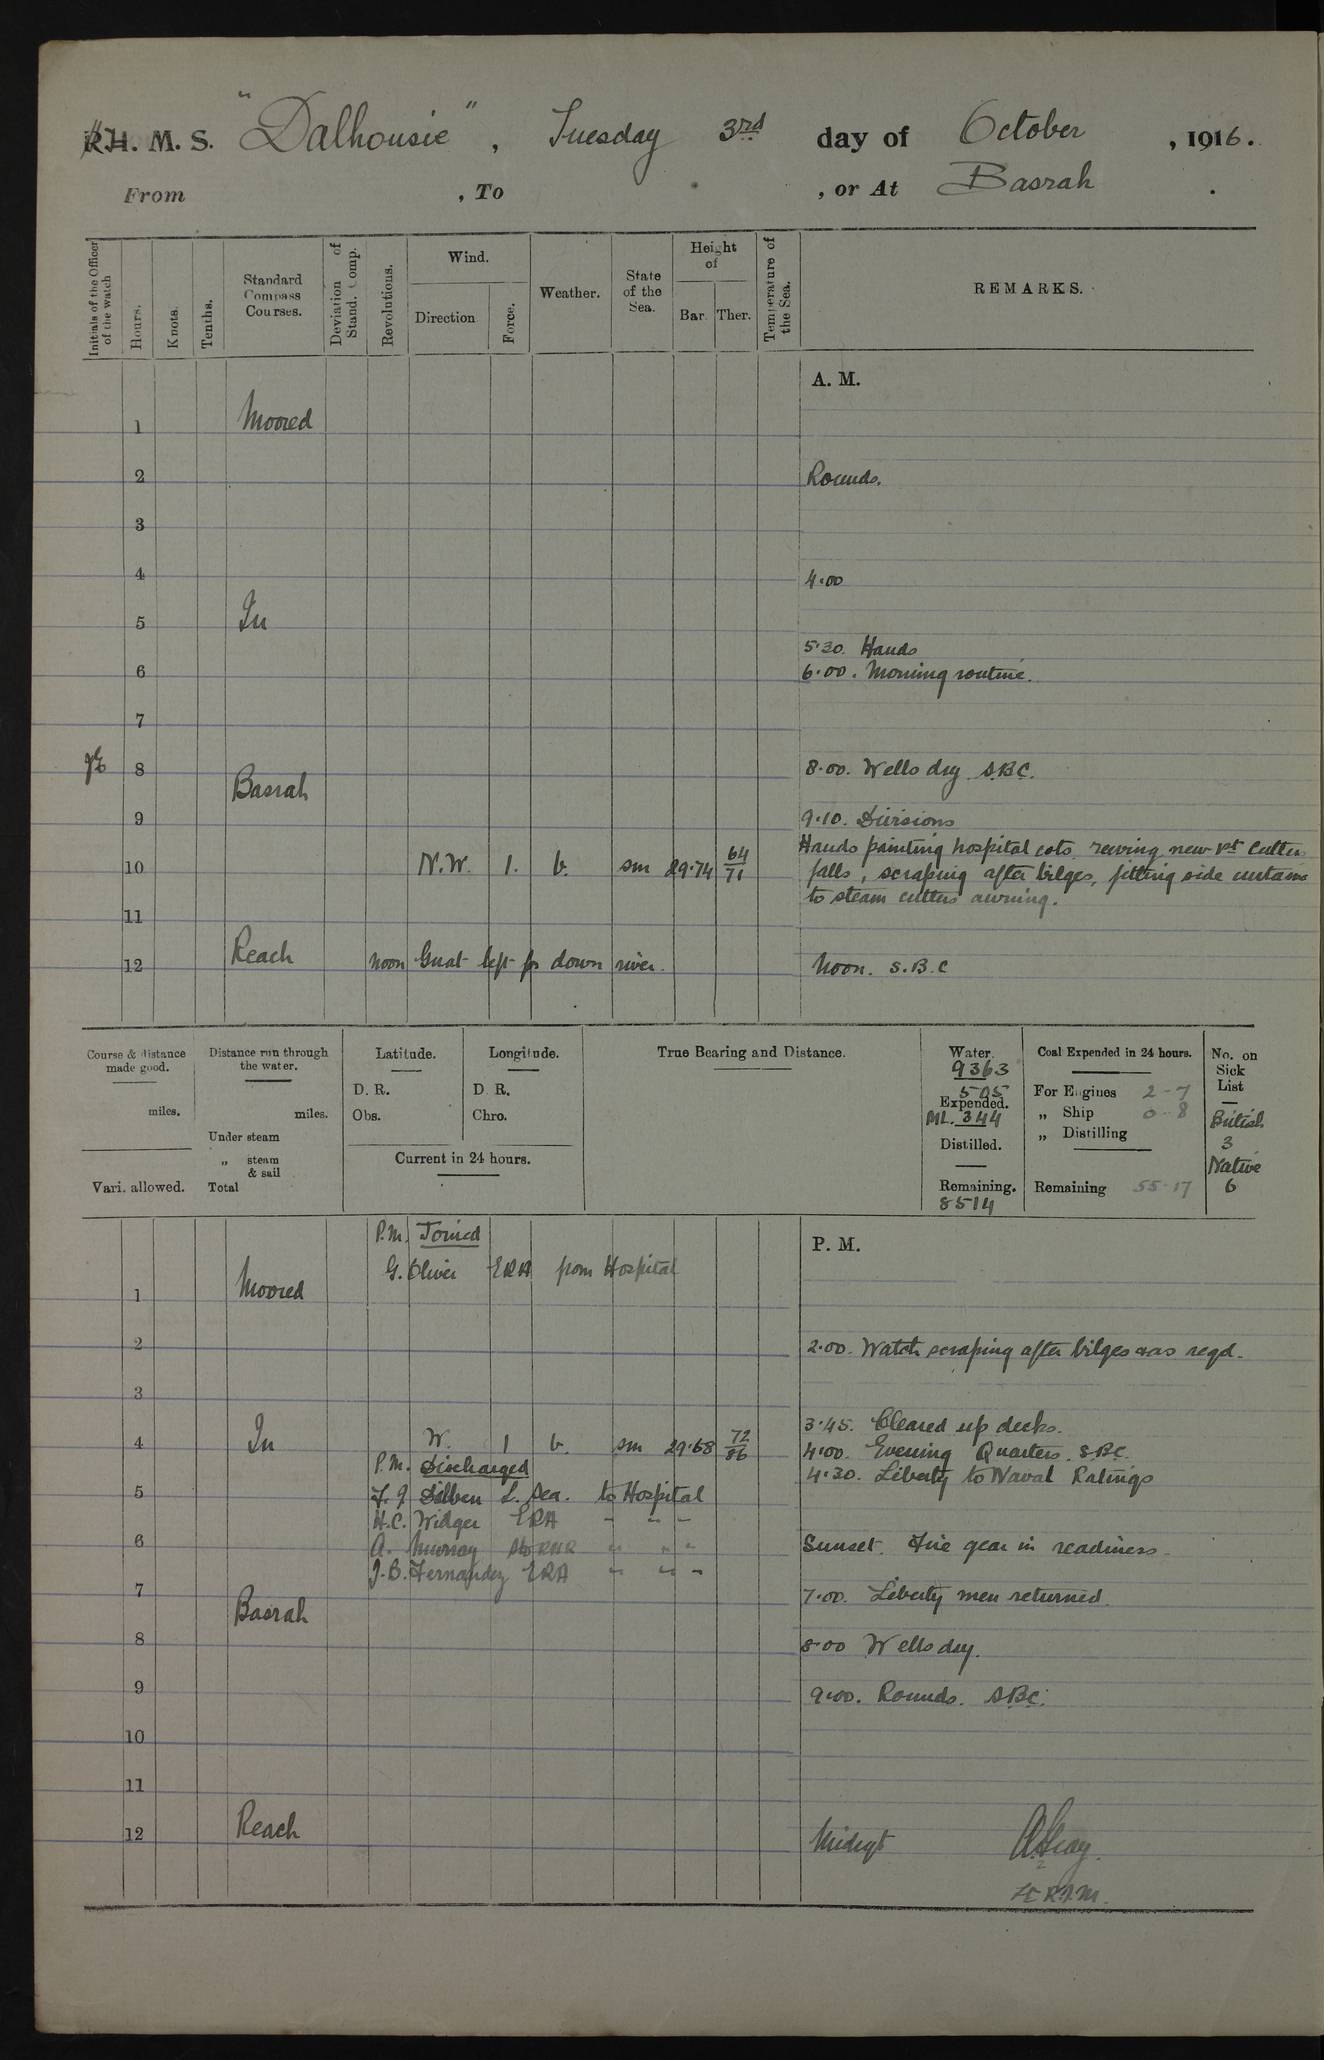 H. M. S. "Dalhousie", Tuesday 3rd day of October, 1916.
From , To , or At Basrah .
Initials of the Officer of the watch
Hours.
Knots.
Tenths.
Standard Compass Courses.
Deviation of Stand. Comp.
Revolutions.
Wind.
Direction
Force.
Weather.
State of the Sea.
Height of
Bar. Ther.
Temperature of the Sea.
REMARKS.
A. M.
1 Moored
2 Rounds.
3
4 4.00
5 In
5.30. Hands
6 6.00. Morning routine.
7
8 8.00. Wells dry. S.B.C.
Basrah
9 9.10. Divisions
Hands painting hospital cots, reeving new 1st Cutters
10 N.W. 1. b. sm 29.74 64/71 falls, scraping after bilges, fitting side curtains
to steam cutters awning.
11
Reach
12 Noon Gnat left for down river. Noon. S.B.C
Course & distance made good.
miles.
Vari. allowed.
Distance run through the water.
miles.
Under steam
„ steam & sail
Total
Latitude.
D. R.
Obs.
Longitude.
D. R.
Chro.
Current in 24 hours.
True Bearing and Distance.
Water.
9363
505
Expended.
ML. 344
Distilled.
Remaining.
8514
Coal Expended in 24 hours.
For Engines 2-7
„ Ship 0-8
„ Distilling
Remaining 55-17
No. on Sick List
British
3
Native
6
P.M. Joined
P. M.
G. Oliver ERA from Hospital
1 Moored
2 2.00. Watch scraping after bilges & as reqd.
3
3.45. Cleared up decks.
4 In W. 1 b. sm 29.68 72/86 4.00. Evening Quarters. S.B.C.
P.M. Discharged
4.30. Liberty to Naval Ratings
5 L. Sea. to Hospital
H.C. Widger ERA " " "
6 A. Murray Sto RNR " " "
Sunset. Fire gear in readiness.
J.B. Fernandez ERA " " "
7 7.00. Liberty men returned.
Basrah
8 8.00 Wells dry.
9 9.00. Rounds. S.B.C.
10
11
Reach
12 Midngt
Lt R.I.M.